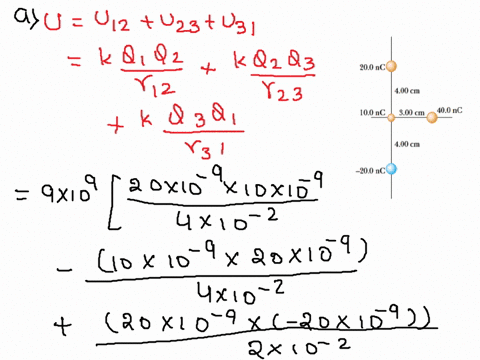 a) U = U12 + U23 + U31
= k Q1 Q2 / r12 + k Q2 Q3 / r23
+ k Q3 Q1 / r31
20.0 nC
4.00 cm
10.0 nC 3.00 cm 40.0 nC
4.00 cm
−20.0 nC
= 9×10^9 [ 20×10^-9 × 10×10^-9 / 4×10^-2
- (10 × 10^-9 × 20×10^-9) / 4×10^-2
+ (20×10^-9 × (-20×10^-9)) / 2×10^-2